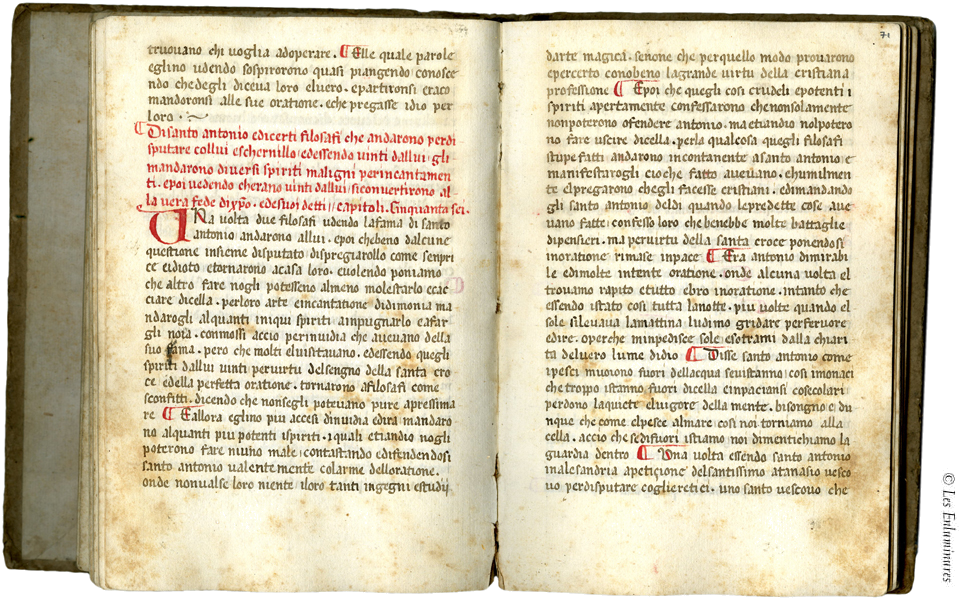 truouano chi uoglia adoperare. ¶ Elle quale parole
eglino udendo sospirorono quasi piangendo conosce
ndo che degli diceua loro eluero. epartironsi eraco
mandoronsi alle sue oratione. eche pregasse idio per
loro.
¶ Disanto antonio edicerti filosafi che andarono perdi
sputare collui eschernillo. edessendo uinti dallui gli
mandarono diuersi spiriti maligni perincantamen
ti. epoi uedendo cherano uinti dallui siconuertirono al
la uera fede dixpo. edesuoi detti capitoli. Cinquanta sei.
UNa uolta due filosafi udendo lafama di santo
antonio andarono allui. epoi chebeno dalcune
questione insieme disputato dispregiarollo come senpri
ce eidioto etornarono acasa loro. euolendo poniamo
che altro fare nogli potesseno almeno molestarlo ecac
ciare dicella. perloro arte eincantatione didimonia ma
ndarogli alquanti iniqui spiriti ainpugnarlo eafar
gli noia. conmossi accio perinuidia che aueuano della
suo fama. pero che molti eluisitauano. edessendo quegli
spiriti dallui uinti peruirtu delsengno della santa cro
ce edella perfetta oratione. tornarono afilosafi come
sconfitti. dicendo che nonsegli poteuano pure apressima
re ¶ Eallora eglino piu accesi dinuidia edira mandaro
no alquanti piu potenti ispiriti. iquali etiandio nogli
poterono fare niuno male. contastando edifendendosi
santo antonio ualentemente colarme delloratione.
onde nonualse loro niente iloro tanti ingegni estudij
71
darte magica. senone che perquello modo prouarono
epercerto conobeno lagrande uirtu della cristiana
professione ¶ Epoi che quegli cosi crudeli epotenti i
spiriti apertamente confessarono chenonsolamente
nonpoterono ofendere antonio. ma etiandio nolpotero
no fare uscire dicella. perla qualcosa quegli filosafi
stupefatti andarono incontanente asanto antonio e
manifestarogli cioche fatto aueuano. ehumilmen
te elpregarono chegli facesse cristiani. edimandando
gli santo antonio deldi quando lepredette cose aue
uano fatte. confesso loro chebenbe molte battaglie
dipensieri. ma peruirtu della santa croce ponendosi
inoratione rimase inpace ¶ Era antonio dimirabi
le edimolte intente oratione. onde alcuna uolta el
trouamo rapito etutto ebro inoratione. intanto che
essendo istato cosi tutta lanotte. piu uolte quando el
sole sileuaua lamattina ludimo gridare perferuore
edire. operche minpedisce sole esotrami dalla chiari
ta deluero lume didio ¶ Disse santo antonio come
ipesci muoiono fuori dellacqua seuistanno: cosi imonaci
che troppo istanno fuori dicella einpacciansi cosecolari
perdono laquiete eluigore della mente. bisongno e du
nque che come elpesce almare cosi noi torniamo alla
cella. accio che sedifuori istiamo noi dimentichiamo la
guardia dentro ¶ Una uolta essendo santo antonio
inalesandria apetictione delsantissimo atanasio uesco
uo perdisputare coglieretici. uno santo uescouo che
© Les Enluminures